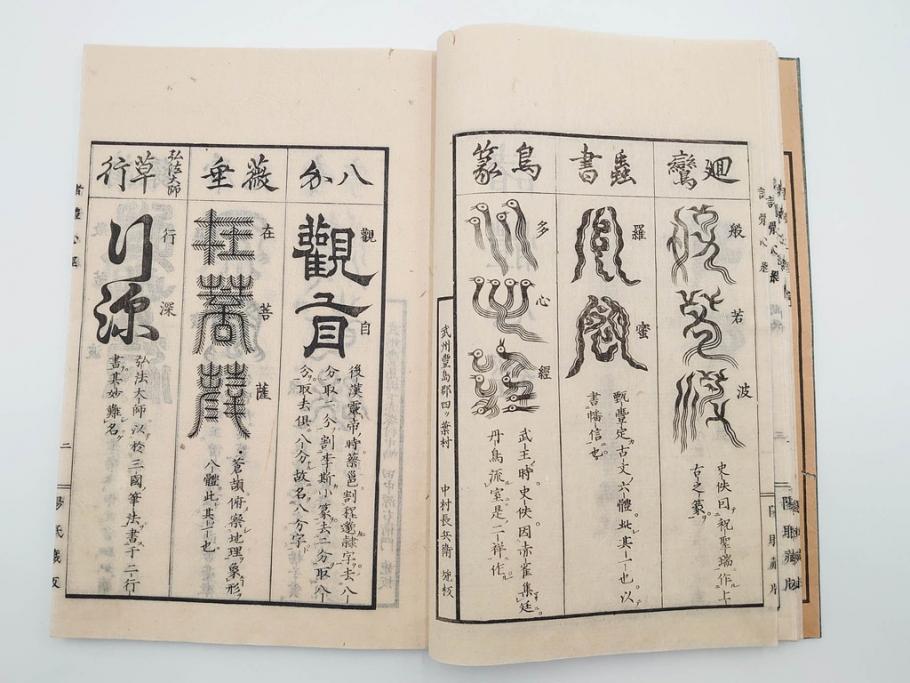 廻鸞
般
若
波
史佚因覩聖瑞作上
古之篆
蟲書
羅
蜜
甄豐定古文六體此其一也以
書幡信也
鳥篆
多
心
經
武王時史佚因赤雀集廷
丹鳥流室是二祥作
武州豐島郡四ッ葉村
中村長兵衛 施板
八分
觀
自
後漢靈帝時蔡邕割程邈隷字去八
分取二分割李斯小篆去二分取八
分取去俱八分故名八分字
薇垂
在
菩
薩
蒼頡俯察地理象形
八體此其一也
草行
弘法大師
行
深
弘法大師以於三國筆法書于二行
畫其妙難名
二